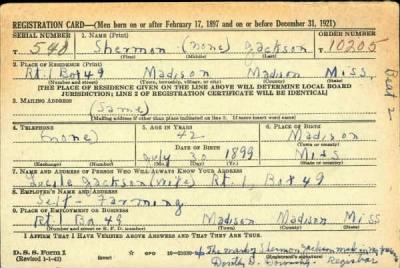 REGISTRATION CARD—(Men born on or after February 17, 1897 and on or before December 31, 1921)
SERIAL NUMBER 1. NAME (Print) ORDER NUMBER
T 540 Sherman (none) Jackson T 10205
(First) (Middle) (Last)
2. PLACE OF RESIDENCE (Print)
Rt. 1 Box 49 Madison Madison Miss.
(Number and street) (Town, township, village, or city) (County) (State)
[THE PLACE OF RESIDENCE GIVEN ON THE LINE ABOVE WILL DETERMINE LOCAL BOARD
JURISDICTION; LINE 2 OF REGISTRATION CERTIFICATE WILL BE IDENTICAL]
3. MAILING ADDRESS
(Same)
[Mailing address if other than place indicated on line 2. If same insert word same]
4. TELEPHONE 5. AGE IN YEARS 6. PLACE OF BIRTH
(none) 42 Madison
DATE OF BIRTH (Town or county)
July 30 1899 Miss
(Exchange) (Number) (Mo.) (Day) (Yr.) (State or country)
7. NAME AND ADDRESS OF PERSON WHO WILL ALWAYS KNOW YOUR ADDRESS
Lucile Jackson (wife) Rt. 1, Box 49
8. EMPLOYER'S NAME AND ADDRESS
Self-Farming
9. PLACE OF EMPLOYMENT OR BUSINESS
Rt. 1 Bo 49 Madison Madison Miss
(Number and street or R. F. D. number) (Town) (County) (State)
I AFFIRM THAT I HAVE VERIFIED ABOVE ANSWERS AND THAT THEY ARE TRUE.
D. S. S. Form 1
(Revised 1-1-42) (over)
Sherman Jackson
Registrar
Beat 2